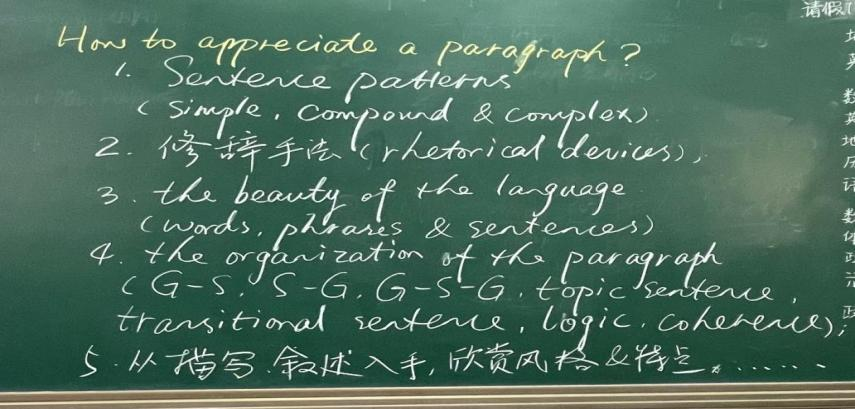 How to appreciate a paragraph?
1. Sentence patterns
(simple, compound & complex)
2. 修辞手法 (rhetorical devices),
3. the beauty of the language
(words, phrases & sentences)
4. the organization of the paragraph
(G-S, S-G, G-S-G, topic sentence,
transitional sentence, logic, coherence);
5. 从描写、叙述入手, 欣赏风格&特点。......
请假
英
数
英
地
历
数
体
政